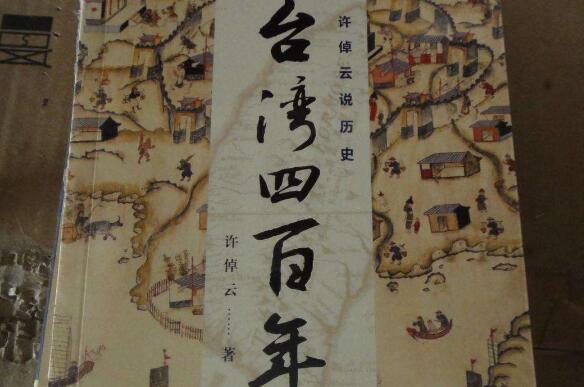 许倬云说历史
台湾四百年
许倬云……著